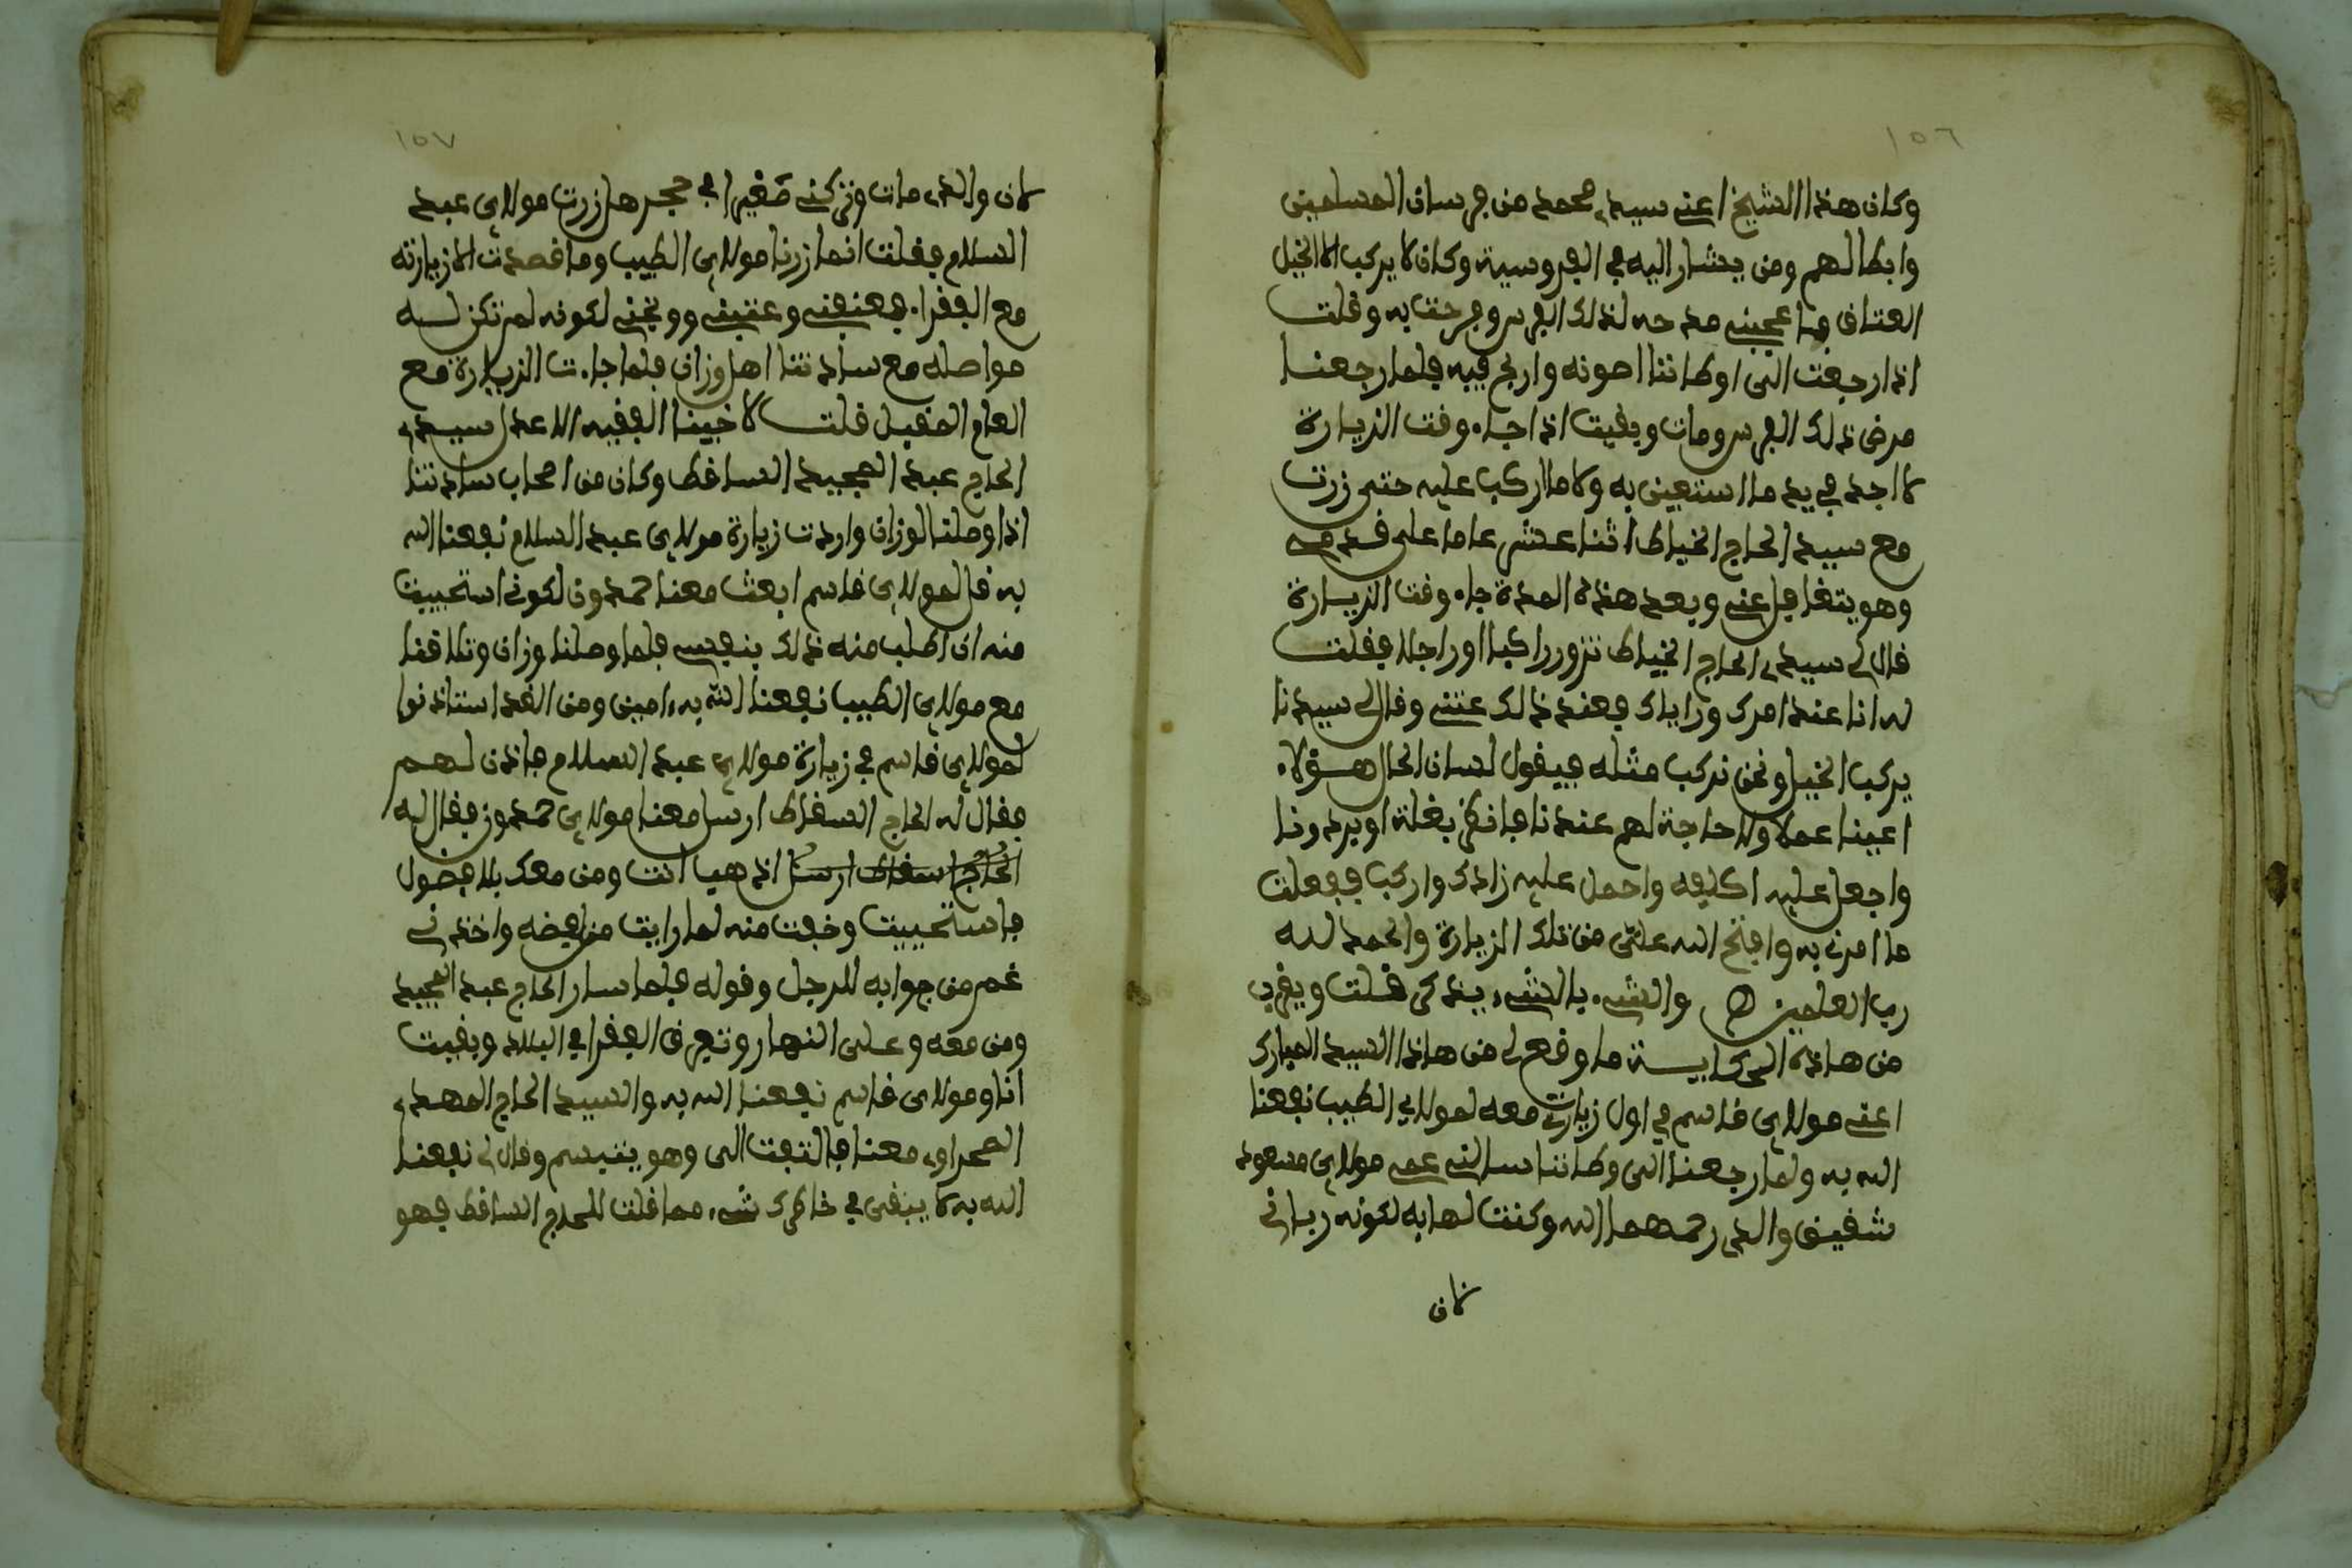 ١٥٦
وكان هذا الشيخ اعني سيدي محمد من فرسان المسلمين
وابطالهم ومن يشار اليه في الفروسية وكان لا يركب الا الخيل
العتاق فاعجبني مدحه لذلك الفرس وفرحت به وقلت
اذا رجعت الى اوطاننا اصونه واربح فيه فلما رجعنا
مرض ذلك الفرس ومات وبقيت اذا جاء وقت الزيارة
لا اجد في يد ما استعين به ولا ما اركب عليه حتى زرت
مع سيد الحاج الخياط اثنا عشر عاما على قدمه
وهو يتغافل عني وبعد هذه المدة جاء وقت الزيارة
قال لي سيدي الحاج الخياط تزور راكبا او راجلا فقلت
له انا عند امرك ورايك فعند ذلك عتني وقال لي سيدنا
يركب الخيل ونحن نركب مثله فيقول لسان الحال هؤلاء
اعينا عملا ولا حاجة لهم عندنا فانظر بغلة او بردونا
واجعل عليه اكليفه واحمل عليه زادك واركب ففعلت
ما امرني به وافتح الله علي من تلك الزيارة والحمد لله
رب العلمين ه والشيء بالشيء يذكر قلت ويقرب
من هاذه الحكاية ما وقع لي من هاذا السيد المبارك
اعني مولاي قاسم في اول زيارتي معه لمولاي الطيب نفعنا
الله به ولما رجعنا الى وطاننا سالني عمي مولاي مسعود
شقيق والدي رحمهما الله وكنت لهابه لكونه رباني
كان
١٥٧
كان والدي مات وتركني صغيرا في حجره هل زرت مولاي عبد
السلام فقلت انما زرنا مولاي الطيب وما قصدت الا زيارته
مع الفقراء فعنفني وعتبني ووبخني لكونه لم تكن له
مواصلة مع ساداتنا اهل وزان فلما جاءت الزيارة مع
العام المقبل قلت لاخينا الفقيه الاعدل سيدي
الحاج عبد المجيد الساقط وكان من اصحاب ساداتنا
اذا وصلنا لوزان واردت زيارة مولاي عبد السلام نفعنا الله
به قل لمولاي قاسم ابعث معنا حمدون لكوني استحييت
منه ان اطلب منه ذلك بنفسي فلما وصلنا وزان وتلاقنا
مع مولاي الطيب نفعنا الله به ءامين ومن الغد استاذنوا
لمولاي قاسم في زيارة مولاي عبد السلام فاذن لهم
فقال له الحاج السقاط ارسل معنا مولاي حمدون فقال له
الحاج اسقاط ارسل اذهب انت ومن معك بلا فضول
فاستحييت وخفت منه لما رايت من غيضه واخذني
غم من جوابه للرجل وقوله فلما سار الحاج عبد المجيد
ومن معه وعلى النهار وتفرق الفقرا في البلاد وبقيت
انا ومولاي قاسم نفعنا الله به والسيد الحاج المهدي
الصحراوي معنا فالتفت الي وهو يتبسم وقال لي نفعنا
الله به لا يبقى في خاطرك شيء مما قلت للحاج الساقط فهو